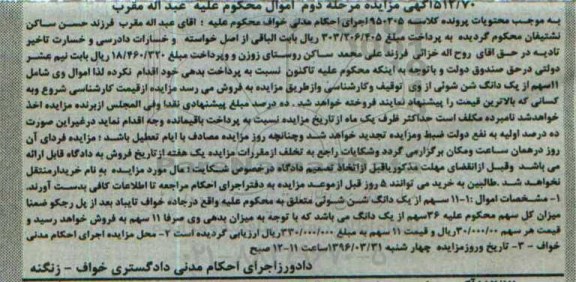 ۵۱۲/۷۰ آگهی مزایده مرحله دوم اموال محکوم علیه عبد اله مقرب
به موجب محتویات پرونده کلاسه ۹۵۰۲۰۵ اجرای احکام مدنی خواف محکوم علیه ؛ آقای عبد اله مقرب فرزند حسن ساکن
نشتیفان محکوم گردیده به پرداخت مبلغ ۳۰۳/۲۰۶/۴۰۵ ریال بابت الباقی از اصل خواسته و خسارات دادرسی و خسارت تاخیر
تادیه در حق آقای روح اله خزائی فرزند علی محمد ساکن روستای زوزن و وپرداخت مبلغ ۱۸/۴۶۰/۳۲۰ ریال بابت نیم عشر
دولتی درحق صندوق دولت و باتوجه به اینکه محکوم علیه تاکنون نسبت به پرداخت بدهی خود اقدام نکرده لذا اموال وی شامل
۱۱سهم از یک دانگ شن شوئی از وی توقیف وکارشناسی وازطریق مزایده به فروش می رسد مزایده ازقیمت کارشناسی شروع وبه
کسانی که بالاترین قیمت را پیشنهاد نمایند فروخته خواهد شد . ده درصد مبلغ پیشنهادی نقدا وفی المجلس ازبرنده مزایده اخذ
خواهدشد نامبرده مکلف است حداکثر ظرف یک ماه از تاریخ مزایده نسبت به پرداخت باقیمانده وجه اقدام نماید درغیراین صورت
ده درصد اولیه به نفع دولت ضبط ومزایده تجدید خواهد شد وچنانچه روز مزایده مصادف با ایام تعطیل باشد ؛ مزایده فردای آن
روز درهمان ساعت ومکان برگزارمی گردد وشکایات راجع به تخلف ازمقررات مزایده یک هفته از تاریخ فروش به دادگاه قابل ارائه
می باشد وقبل ازانقضای مهلت مذکوریاقبل ازاتخاذ تصمیم دادگاه درخصوص شکایت ؛ مال مورد مزایده به نام خریدارمنتقل
نخواهد شد .طالبین به خرید می توانند ۵ روز قبل ازموعد مزایده به دفتراجرای احکام مراجعه تا اطلاعات کافی بدست آورند.
۱- مشخصات اموال :۱-۱۱ سهم از یک دانگ شن شوئی متعلق به محکوم علیه واقع درجاده خواف تایباد بعد از پل رجکو ضمنا
میزان کل سهم محکوم علیه ۳۶سهم از یک دانگ می باشد که با توجه به میزان بدهی وی صرفا ۱۱ سهم به فروش خواهد رسید و
قیمت هر سهم ۳۰/۰۰۰/۰۰ریال و قیمت ۱۱ سهم به مبلغ ۳۳۰/۰۰۰/۰۰۰ریال ارزیابی گردیده است ۲- محل مزایده اجرای احکام مدنی
خواف - ۳- تاریخ وروزمزایده چهار شنبه ۱۳۹۶/۰۳/۳۱ساعت ۱۱-۱۲ صبح
دادورزاجرای احکام مدنی دادگستری خواف - زنگنه